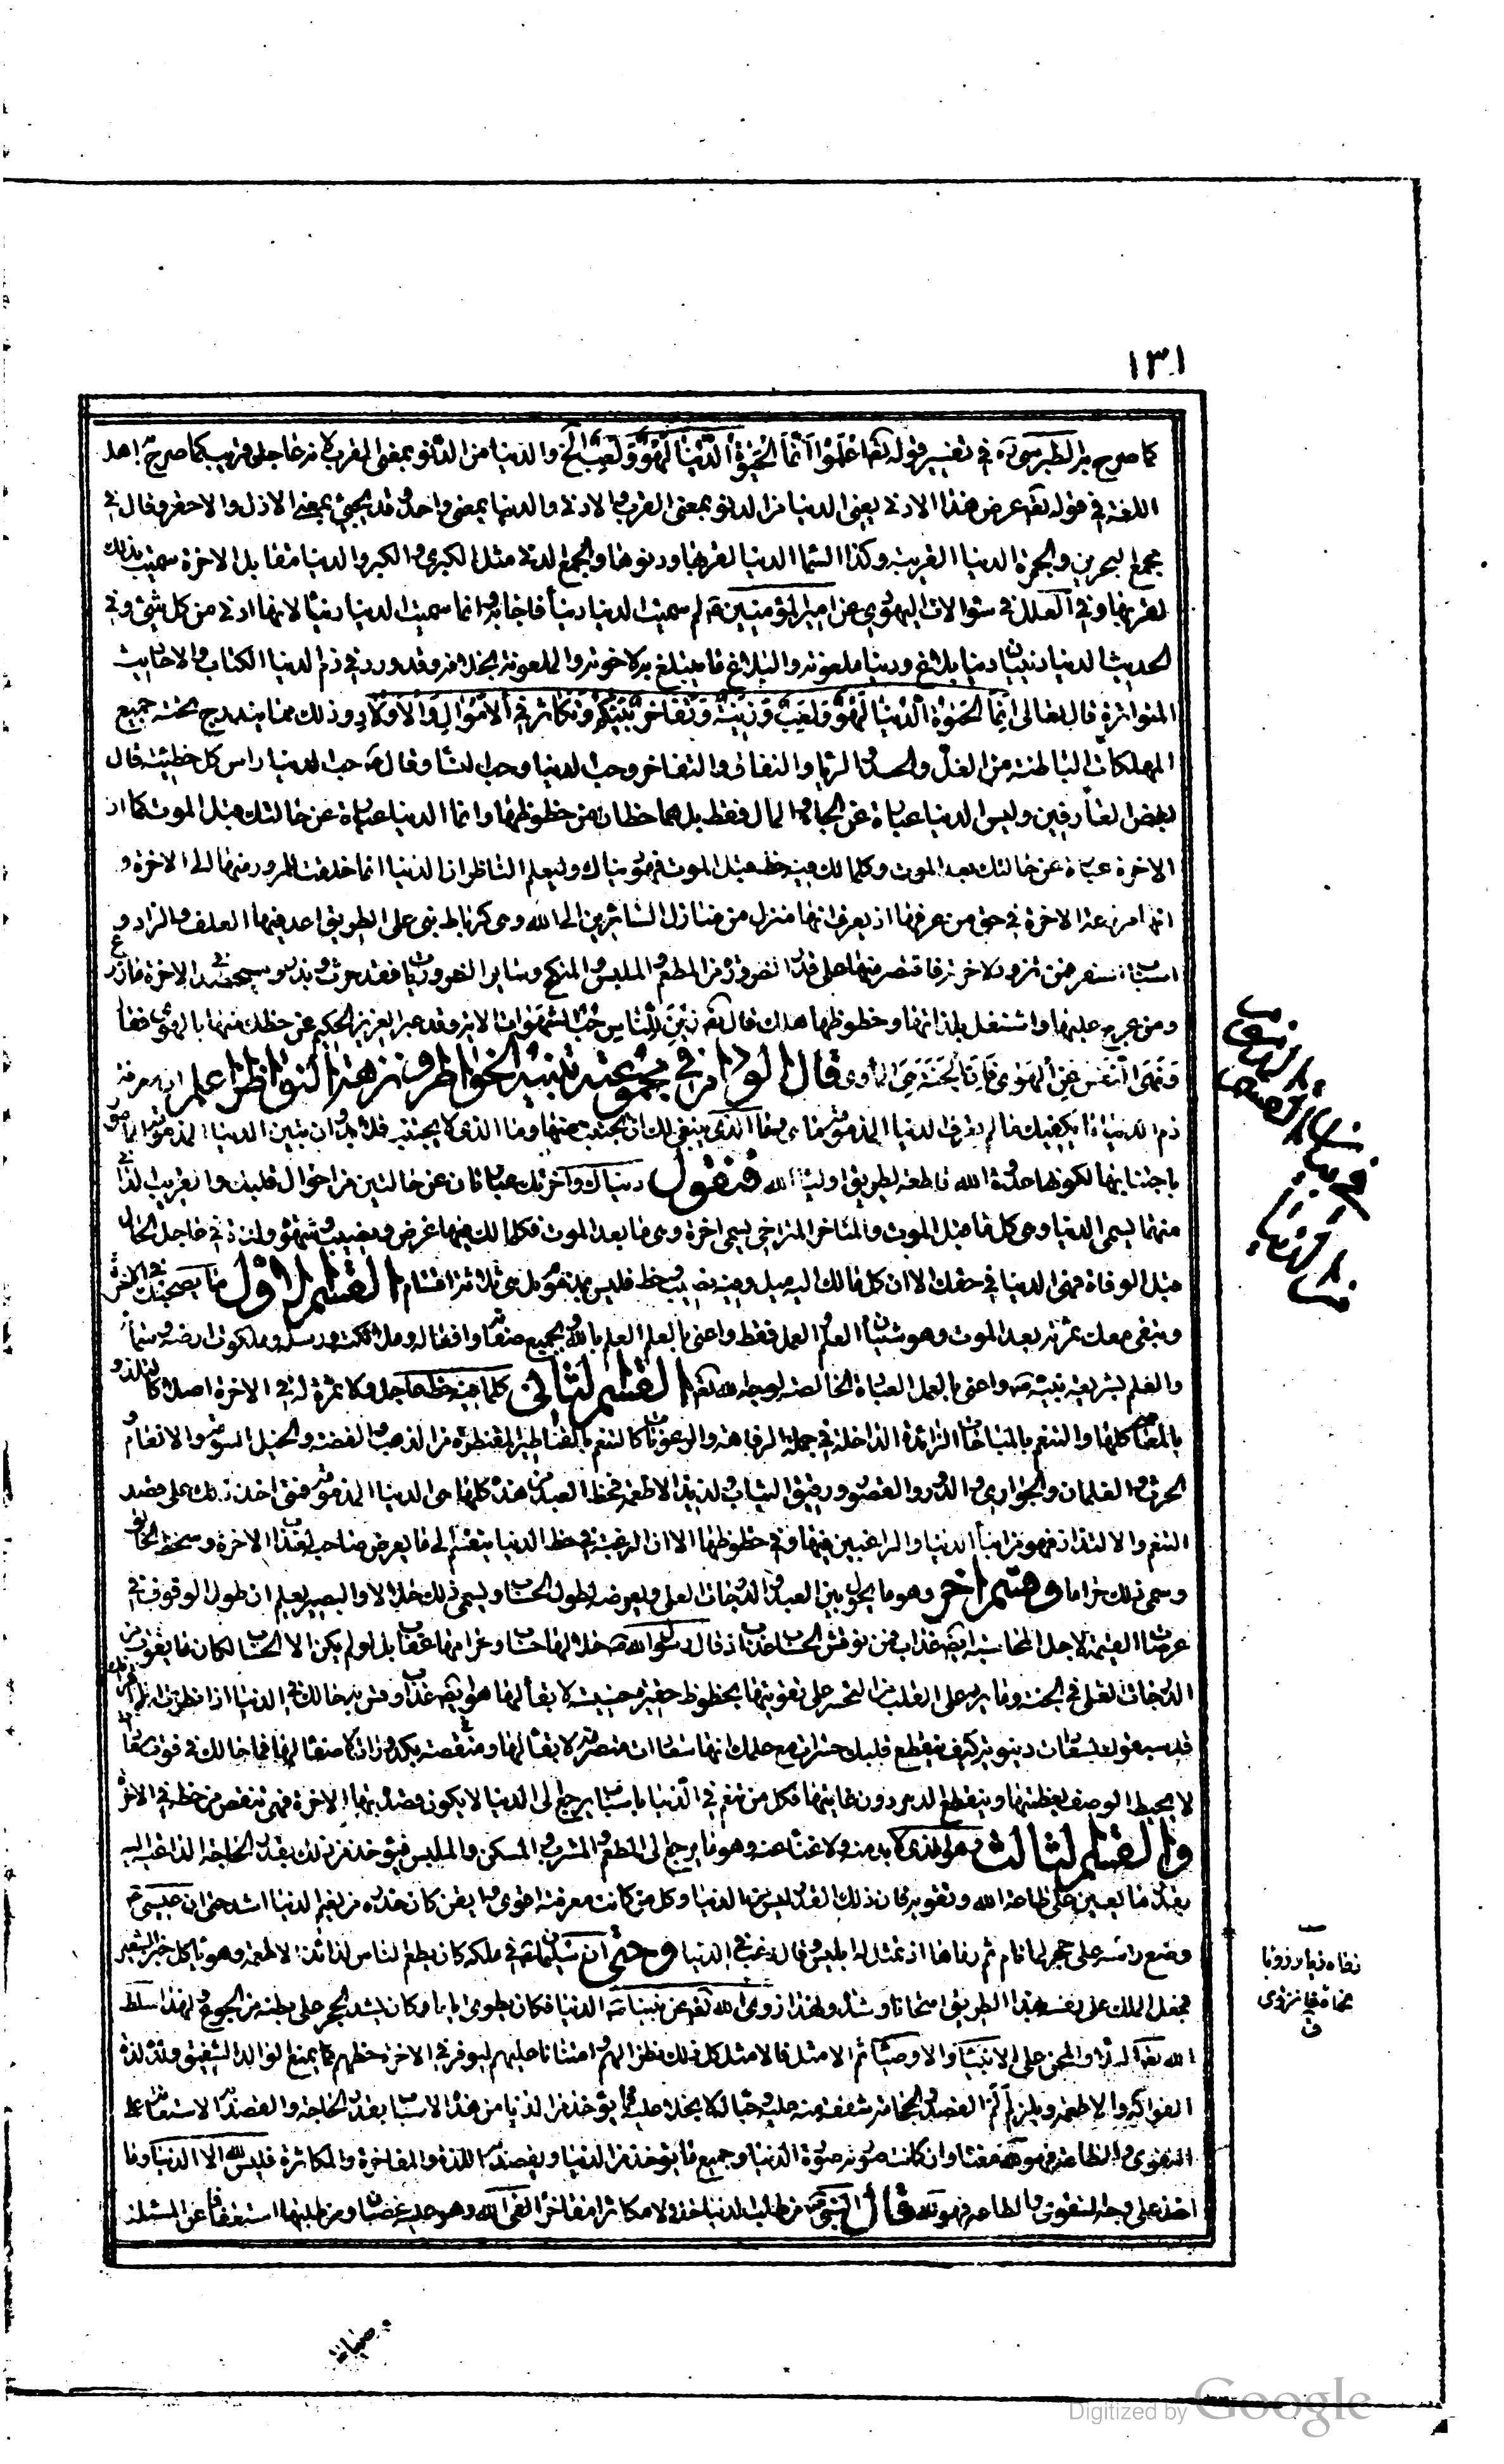 ١٣١
كما صرح به الطبرسي ره في تفسير قوله تعالى اعلموا أنما الحيوة الدنيا لهو ولعب الخ والدنيا من الدنو بمعنى القرب لانه عاجل قريب كما صرح به اهل
اللغة في قوله تعالى عرض هذا الادنى يعنى الدنيا من الدنو بمعنى القرب والادنى والدنيا بمعنى واحد وقد يجيئ بمعنى الارذل والاحقر وقال في
مجمع البحرين والجمرة الدنيا القريبة وكذا السماء الدنيا لقربها ودنوها والجمع الدنى مثل الكبرى والكبر والدنيا مقابل الاخرة سميت بذلك
لقربها وفي العلل في سؤالات اليهودي عن امير المؤمنين ع لم سميت الدنيا دنيا فاجابه انما سميت الدنيا دنيا لانها ادنى من كل شيئ وفي
الحديث الدنيا دنيا آن دنيا بلاغ ودنيا ملعونة والبلاغ ما يتبلغ به لاخرته والملعونة بخلافه وقد ورد في ذم الدنيا الكتاب والاحاديث
المتواترة قال تعالى إنما الحيوة الدنيا لهو ولعب وزينة وتفاخر بينكم وتكاثر في الاموال والاولاد وذلك مما يندرج تحته جميع
المهلكات الباطنة من الغل والحسد والريا والنفاق والتفاخر وحب الدنيا وحب النسا وقال ص حب الدنيا راس كل خطيئة قال
بعض العارفين وليس الدنيا عبارة عن الجاه والمال فقط بل هما حظان من حظوظها وانما الدنيا عبارة عن حالتك قبل الموت كما ان
الاخرة عبارة عن حالتك بعد الموت وكلما لك فيه حظ قبل الموت فهو دنياك وليعلم الناظر ان الدنيا انما خلقت للمرور منها الى الاخرة و
انها مزرعة الاخرة في حق من عرفها اذ يعرف انها منزل من منازل السائرين الى الله وهي كرباط بني على الطريق اعد فيها العلف والزاد و
اسباب السفر فمن تزود لاخرته فاقتصر منها على قدر الضرورة من المطعم والملبس والمنكح وساير الضروريات فقد حرث وبذر وسيحصد في الاخرة ما زرع
ومن عرج عليها واشتغل بلذاتها وحظوظها هلك قال تعالى زين للناس حب الشهوات الاية وقد عبر العزيز الحكيم عن حظك منها بالهوى فقال
ونهى النفس عن الهوى فإن الجنة هي المأوى قال الورام في مجموعته تنبيه الخواطر ونزهة النواظر اعلم ان معرفة
ذم الدنيا لا يكفيك ما لم تعرف الدنيا المذمومة ما هي وما الذي ينبغي لك ان تجتنب منها وما الذى لا يجتنب فلا بد ان نبين الدنيا المذمومة المامور
باجتنابها لكونها عدوة الله قاطعة لطريق اولياء الله فنقول دنياك وآخرتك عبارتان عن حالتين من احوال قلبك والقريب الداني
منهما يسمى الدنيا وهي كل ما قبل الموت والمتاخر المتراخي يسمى اخرة وهى ما بعد الموت فكلما لك فيها غرض ونصيب وشهوة ولذة في عاجل الحال
قبل الوفاة فهى الدنيا في حقك الا ان كل مالك اليه ميل وفيه نصيب وحظ فليس بمذموم بل هي ثلاثة اقسام القسم الاول ما يصحبك في الاخرة
ويبقى معك ثمرته بعد الموت وهو شيئان العلم والعمل فقط واعني بالعلم العلم بالله وبجميع صفاته وافعاله وملائكته ورسله وملكوت ارضه وسمائه
والعلم بشريعة نبيه ص واعني بالعمل العبادة الخالصة لوجه الله تعالى القسم الثاني كلما فيه حظ عاجل ولا ثمرة له في الاخرة اصلا كالتلذذ
بالمعاصي كلها والتنعم بالمباحات الزائدة الداخلة في جملة الرفاهة والرعونات كالتنعم بالقناطير المقنطرة من الذهب والفضة والخيل المسومة والانعام
والحرث والغلمان والجواري والدور والقصور ورفيق الثياب ولذيذ الاطعمة فحظ العبد من هذه كلها هي الدنيا المذمومة فمن اخذ ذلك على قصد
التنعم والالتذاذ فهو من ابناء الدنيا والراغبين فيها وفي حظوظها الا ان الرغبة في حظ الدنيا ينقسم الى ما يعرض صاحبه لعذاب الاخرة وسخط الخالق
وسمى ذلك حراما وقسم اخر وهو ما يحول بين العبد والدرجات العلى ويعرضه لطول الحساب ويسمى ذلك حلالا والبصير يعلم ان طول الوقوف في
عرصات القيمة لاجل المحاسبة ايضا عذاب فمن نوقش الحساب عذب اذ قال رسول الله ص حلالها حساب وحرامها عقاب بل لو لم يكن الا الحساب لكان ما يفوت من
الدرجات العلى في الجنة وما يرد على القلب من التحسر على تفويتها بحظوظ حقيرة خسيسة لا بقاء لها هو ايضا عذاب وقس به حالك في الدنيا اذا نظرت الى اقرانك
قد سبقوك بسعادات دنيوية كيف ينقطع قلبك حسرات مع علمك انها سعادات منصرمة لا بقاء لها ومنغصة بكدورات لا صفاء لها فما حالك في فوت سعادة
لا يحيط الوصف بعظمتها وينقطع الدهر دون غايتها فكل من تنعم في الدنيا باسباب يرجع الى الدنيا لا يكون قصده بها الاخرة فهي تنقص من حظه في الاخرة
والقسم الثالث هو الذى لا بد منه ولا غناء عنه وهو ما يرجع الى المطعم والمشرب والمسكن والملبس فيؤخذ من ذلك بقدر الحاجة الداعية اليه
بقدر ما يعين على طاعة الله وتقويه فان ذلك القدر ليس من الدنيا وكل من كانت معرفته اقوى واتقن كان حذره من نعيم الدنيا اشد حتى ان عيسى ع
وضع راسه على حجر لما نام ثم رماها اذ تمثل له ابليس وقال رغبت في الدنيا وحتى ان سليمان ع في ملكه كان يطعم الناس لذائذ الاطعمة وهو ياكل خبز الشعير
فجعل الملك على نفسه بهذا الطريق امتحانا وشدة ولهذا زوى الله تعالى عن نبينا ص الدنيا فكان يطوى اياما وكان يشد الحجر على بطنه من الجوع ولهذا سلط
الله تعالى البلاء والمحن على الانبياء والاوصياء ثم الامثل فالامثل كل ذلك نظرا لهم وامتنانا عليهم ليتوفر في الاخرة حظهم كما يمنع الوالد الشفيق ولده لذة
الفواكه والاطعمة ويلزم الم الفصد والحجامة شفقة منه عليه وحبا له لا بخلا عليه
التقوى والطاعة فهو لله معنا وان كانت صورته صورة الدنيا وجميع ما يؤخذ من الدنيا ويقصد اللذة والمفاخرة والمكاثرة فليس لله الا الدنيا وما
اخذ على وجه التقوى والطاعة فهو لله قال النبي ص من طلب الدنيا حلالا مكاثرا مفاخرا لقى الله وهو عليه غضبان ومن طلبها استعفافا عن المسئلة
Digitized by Google